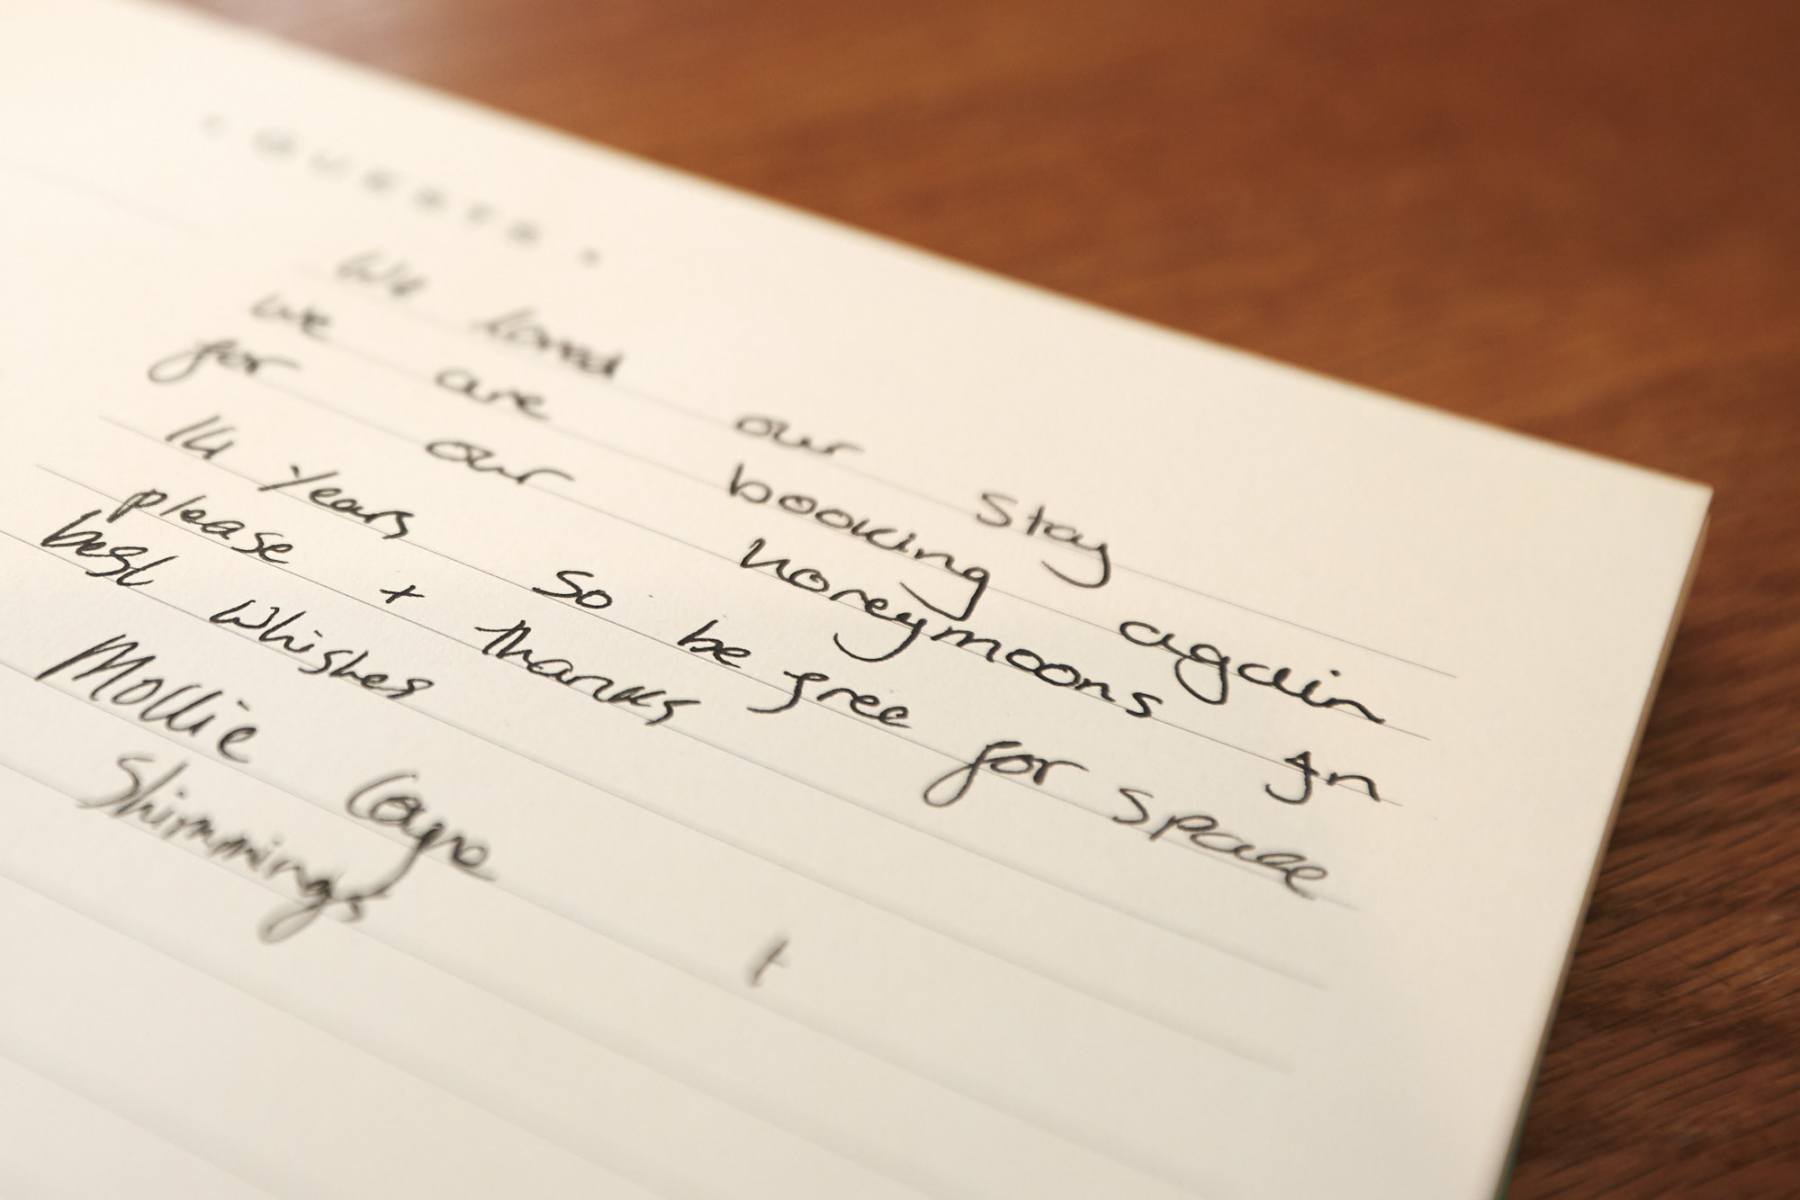 · GUESTS ·
We loved our Stay
we are booking again
for our honeymoons In
14 years so be free for space
please + thanks
best whishes
Mollie
Shimmings